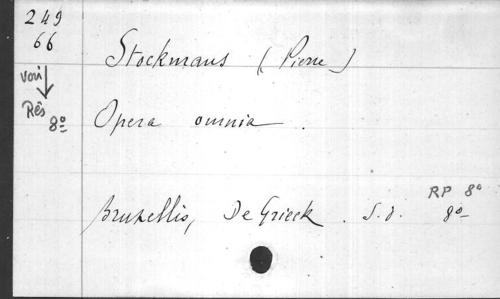 249
66
Stockmans (Pierre)
voir
Rés 8º
Opera omnia.
RP 8º
Bruxellis, De Grieck. S.d. 8º